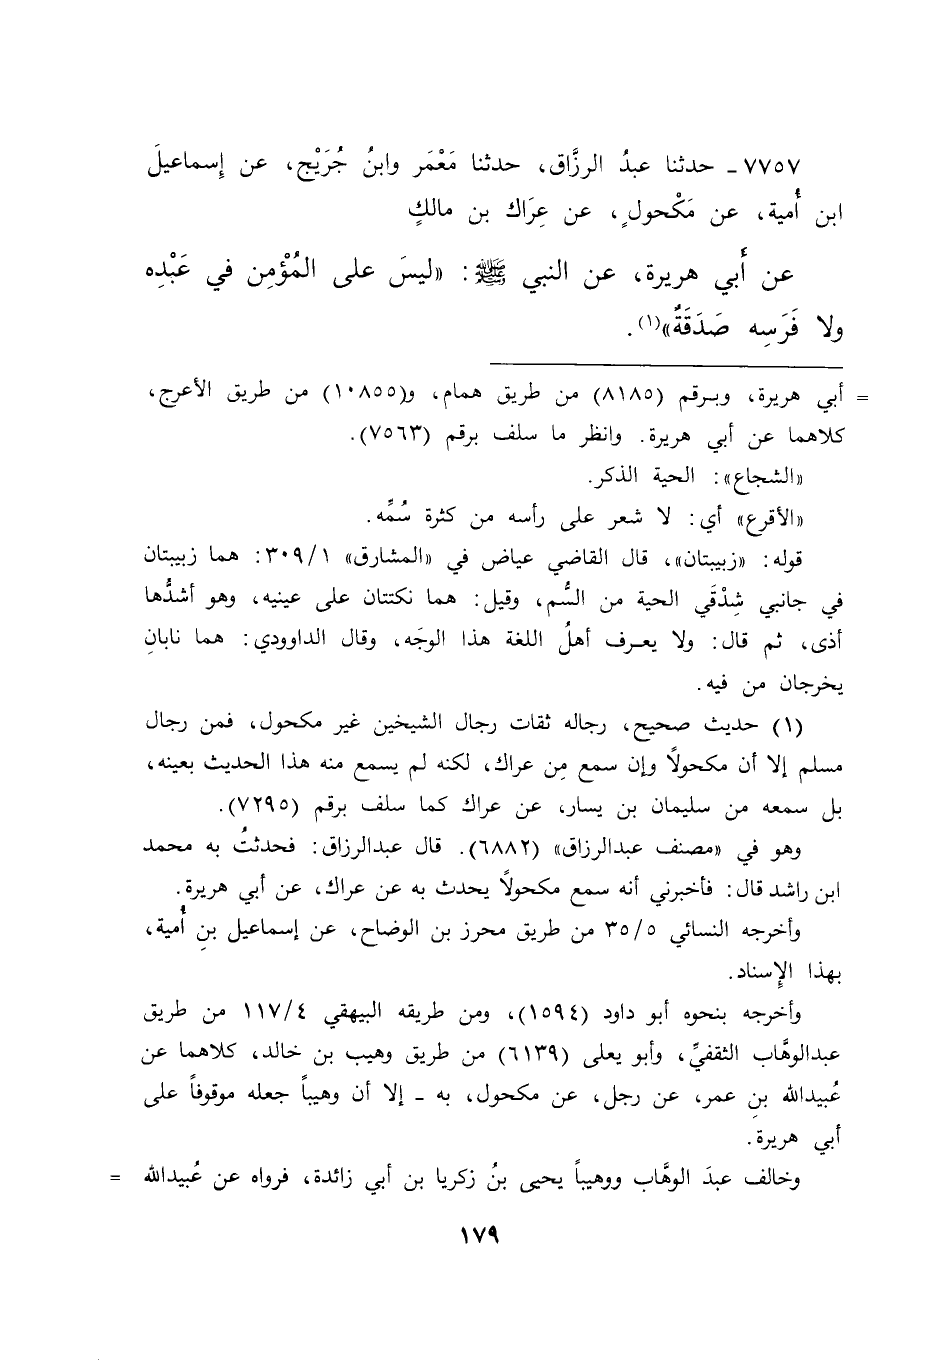 ٧٧٥٧ ـ حدثنا عبدُ الرزَّاق، حدثنا مَعْمَر وابنُ جُرَيْج، عن إسماعيلَ
ابن أُمية، عن مَكْحولٍ، عن عِرَاك بن مالكٍ
عن أَبي هريرة، عن النبي ﷺ: «ليسَ على المُؤْمِن في عَبْدِه
ولا فَرَسِه صَدَقَةٌ»(١).
= أبي هريرة، وبرقم (٨١٨٥) من طريق همام، و(١٠٨٥٥) من طريق الأعرج،
كلاهما عن أبي هريرة. وانظر ما سلف برقم (٧٥٦٣).
«الشجاع»: الحية الذكر.
«الأقرع» أي: لا شعر على رأسه من كثرة سُمِّه.
قوله: «زبيبتان»، قال القاضي عياض في «المشارق» ٣٠٩/١: هما زبيبتان
في جانبي شِدْقَي الحية من السُّم، وقيل: هما نكتتان على عينيه، وهو أشدُّها
أذى، ثم قال: ولا يعرف أهلُ اللغة هذا الوجَه، وقال الداوودي: هما نابانِ
يخرجان من فيه.
(١) حديث صحيح، رجاله ثقات رجال الشيخين غير مكحول، فمن رجال
مسلم إلا أن مكحولًا وإن سمع مِن عراك، لكنه لم يسمع منه هذا الحديث بعينه،
بل سمعه من سليمان بن يسار، عن عراك كما سلف برقم (٧٢٩٥).
وهو في «مصنف عبدالرزاق» (٦٨٨٢). قال عبدالرزاق: فحدثتُ به محمد
ابن راشد قال: فأخبرني أنه سمع مكحولًا يحدث به عن عراك، عن أبي هريرة.
وأخرجه النسائي ٣٥/٥ من طريق محرز بن الوضاح، عن إسماعيل بنِ أُمية،
بهذا الإِسناد.
وأخرجه بنحوه أبو داود (١٥٩٤)، ومن طريقه البيهقي ١١٧/٤ من طريق
عبدالوهَّاب الثقفيِّ، وأبو يعلى (٦١٣٩) من طريق وهيب بن خالد، كلاهما عن
عُبيدالله بنِ عمر، عن رجل، عن مكحول، به ـ إلا أن وهيباً جعله موقوفاً على
أبي هريرة.
وخالف عبدَ الوهَّاب ووهيباً يحيى بنُ زكريا بن أبي زائدة، فرواه عن عُبيدالله =
١٧٩